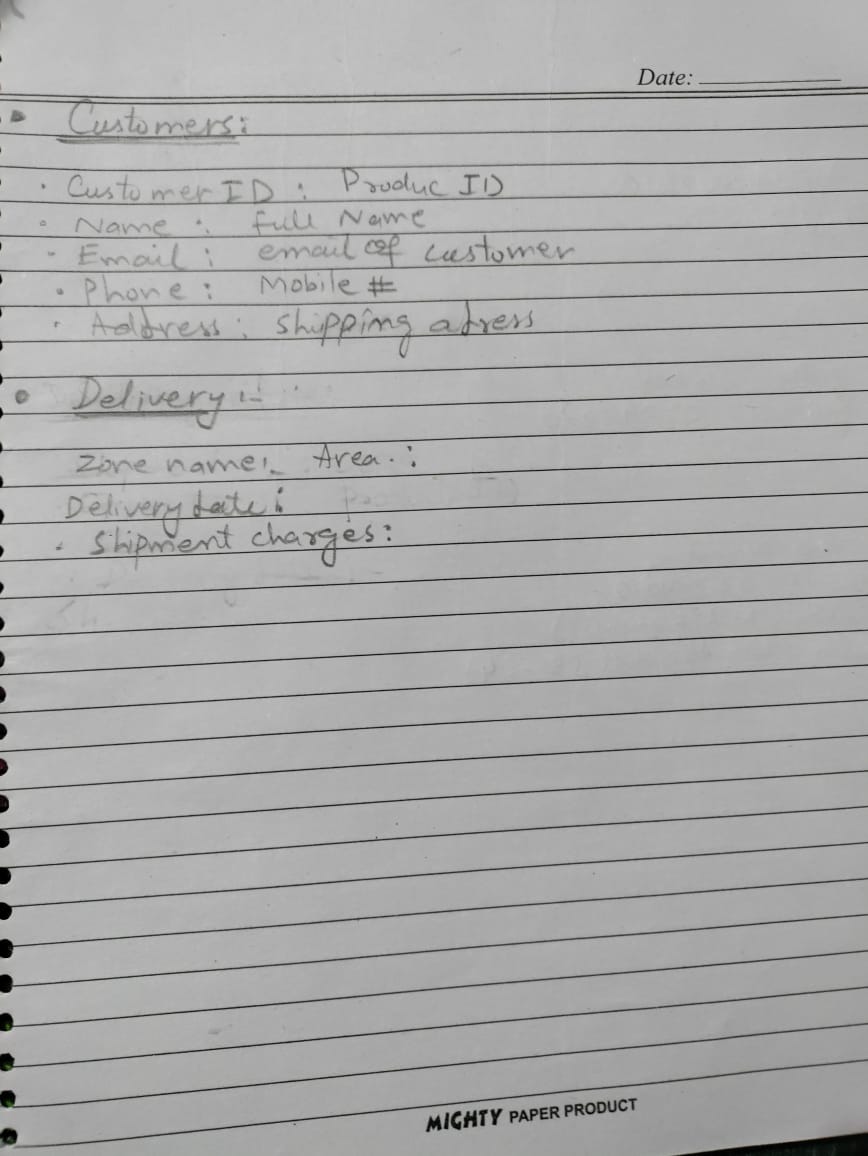 Date:
• Customers:
• Customer ID : Produc ID
• Name : full Name
• Email : email of customer
• Phone : Mobile #
• Address : Shipping adress
• Delivery :-
Zone name :- Area . :
Delivery date :
• Shipment charges :
MIGHTY PAPER PRODUCT